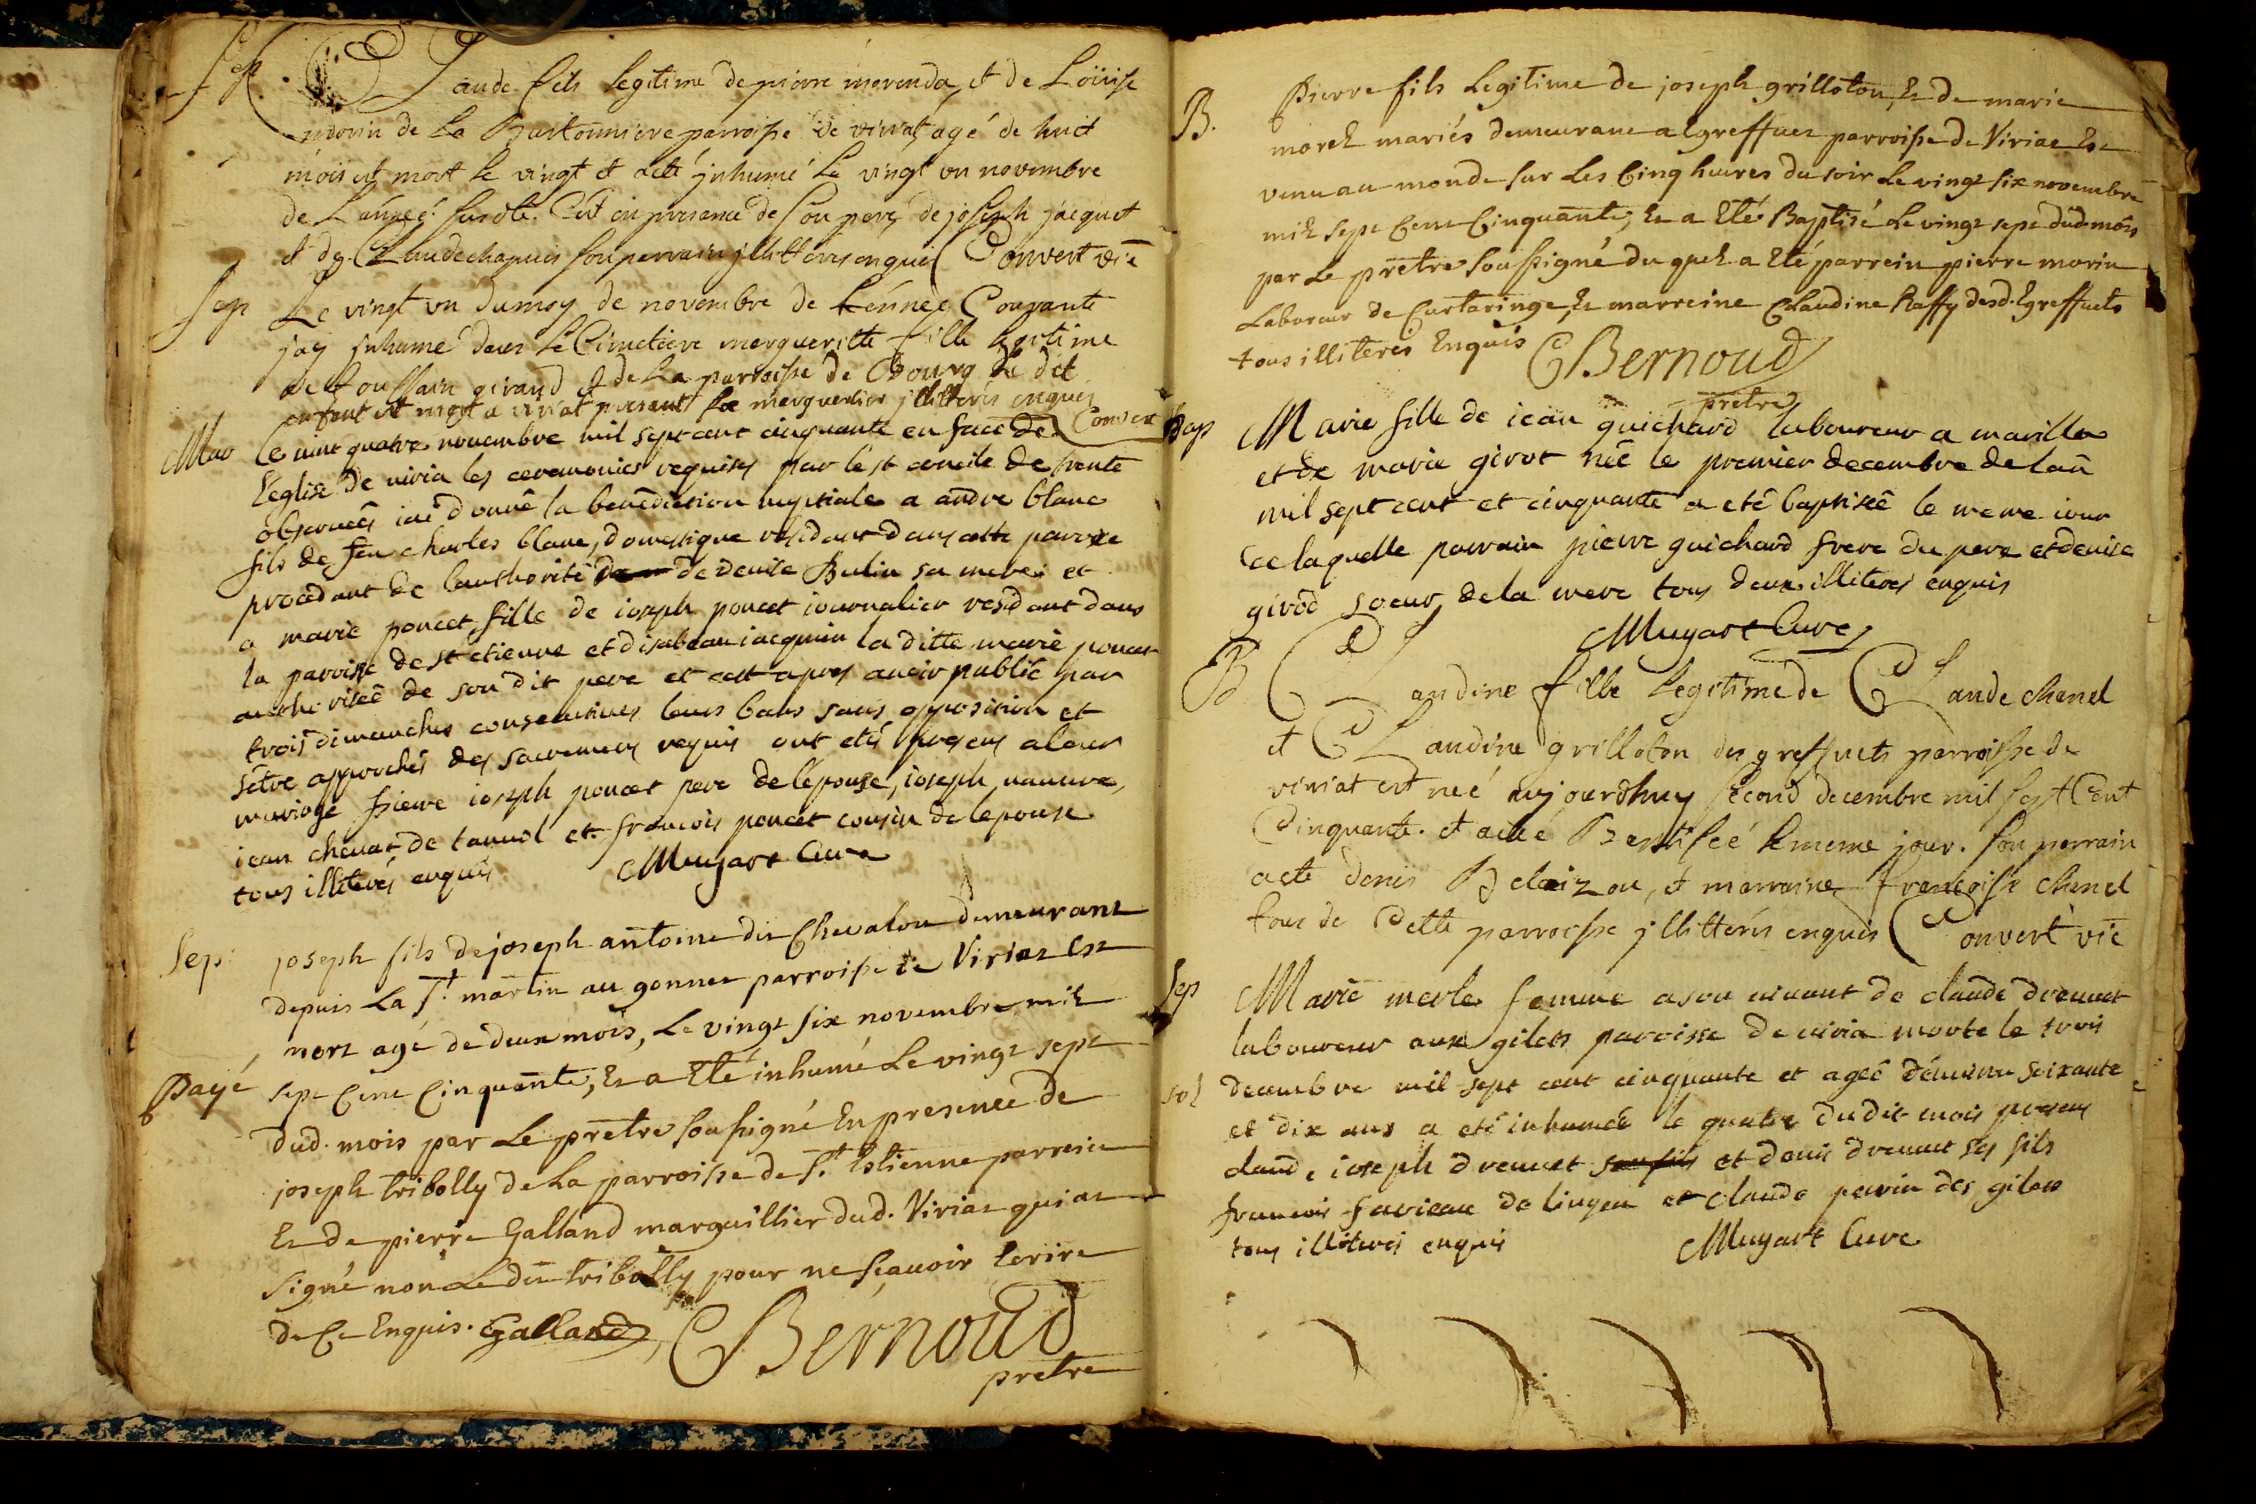 Sep. Claude fils legitime de pierre morenda, et de Loüise
morin de La Bartonniere parroisse de viriat, agé de huit
mois est mort le vingt et aeté jnhumé Le vingt un novembre
de L'année susdte. C'est en presence de son pere, de joseph jacquet
et de Claude chapuis son parrain jllitterés enquis Convert vic
Sep Le vingt un du moy de novembre de L'énnée Courante
jay jnhumé dans Le Cimetiere margueritte fille legitime
de toussain giraud et de La parroisse de Bourg Le dit
enfant est mort a viriat presant Le marguerlier jllitterés enquis Convert
Mar Le vint quatre novembre mil sept cent cinquante en face de
l'église de viria les ceremonies requises par le st concile de trente
observeés iaé donné la benédiction nuptiale a andre blanc
fils de feu charles blanc, domestique residant dans cette paroisse
procedant de lauthorité de denise Bulin sa mere et
a marie poncet fille de ioseph poncet iournalier residant dans
la paroisse de st etienne et disabeau iacquin la ditte marie poncet
authoriseé de son dit pere et cest apres avoir publié par
trois dimanches consecutives leurs bans sans opposition et
sêtre approchés des sacremens requis ont etés presens a leur
mariage sieur ioseph poncet pere de lépouse, ioseph nanure,
iean chevat de tanvol et francois poncet cousin de lepouse
tous illiterés enquis Mugart Cure
Sep. joseph fils de joseph antoine dit Chevalon demeurant
depuis La St. martin au gonnet parroisse de Viriat Est
mort agé de deux mois, Le vingt six novembre mil
Payé sept Cent Cinquante, Et a Eté inhumé Le vingt sept
dud. mois par Le prêtre soussigné En presence de
joseph tribolly de La parroisse de St. Estienne parrein
Et de pierre Galland marguillier dud. Viriat qui at
signé non Le dit tribolly pour ne sçavoir Ecrire
de Ce Enquis. Galland, CBernoud
prêtre
B. Pierre fils Legitime de joseph grilloton, Et de marie
morel mariés demeurant a Egreffuet parroisse de Viriat Est
venu au monde sur Les Cinq heures du soir Le vingt six novembre
mil sept Cent Cinquante, Et a Eté Baptisé Le vingt sept dud. mois
par Le prêtre soussigné du quel a Eté parrein pierre morin
Laboreur de Curtaringe, Et marreine Claudine Raffy desd. Egreffuets
tous illiteres Enquis CBernoud
prêtre
Bap Marie fille de iean guichard laboureur a marillia
et de marie girot neé le premier decembre de lan
mil sept cent et cinquante a eté baptiseé le meme iour
de laquelle parrain pierre guichard frere du pere et denise
girod soeur de la mere tous deux illiteres enquis
Mugart Cure
B Claudine fille Legitime de Claude chanel
et Claudine grilloton des greffuets parroisse de
viriat est neé aujourdhuy second decembre mil sept Cent
Cinquante. et aeté Baptiseé le meme jour. son parrain
aeté denis Belaizon, et marraine francoise chanel
tous de Cette parroisse jllitterés enquis Convert vic
Sep Marie merle femme a son vivant de claude drevuet
laboureur aux gilets paroisse de viria morte le trois
sol decembre mil sept cent cinquante et ageé dénviron soixante
et dix ans a eté inhumeé le quatre dudit mois presens
claude ioseph drevuet son fils et denis drevuet ses fils
francois favieau de lingen et claude perrin des gilets
tous illiterés enquis Mugart Cure